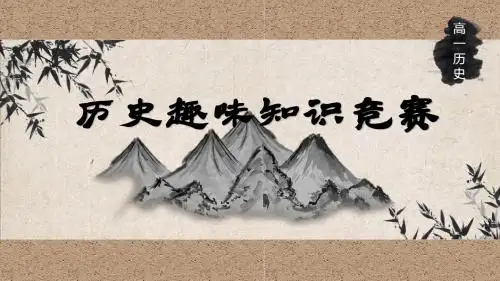 历史趣味知识竞赛
高一历史